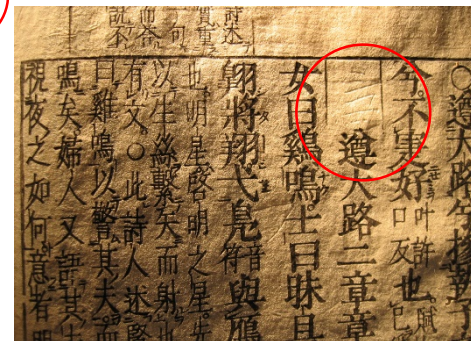 詩述
○遵大路兮摻執子
兮不寁好叶許口反也賦
遵大路二章章
女曰鷄鳴士曰昧旦
翱將翔弋鳧音符與鴈
也明星啓明之星先
以生絲繫矢而射
有文○此詩人述賢
曰雞鳴以警其夫而
鳴矣婦人又語其
視夜之如何意者明